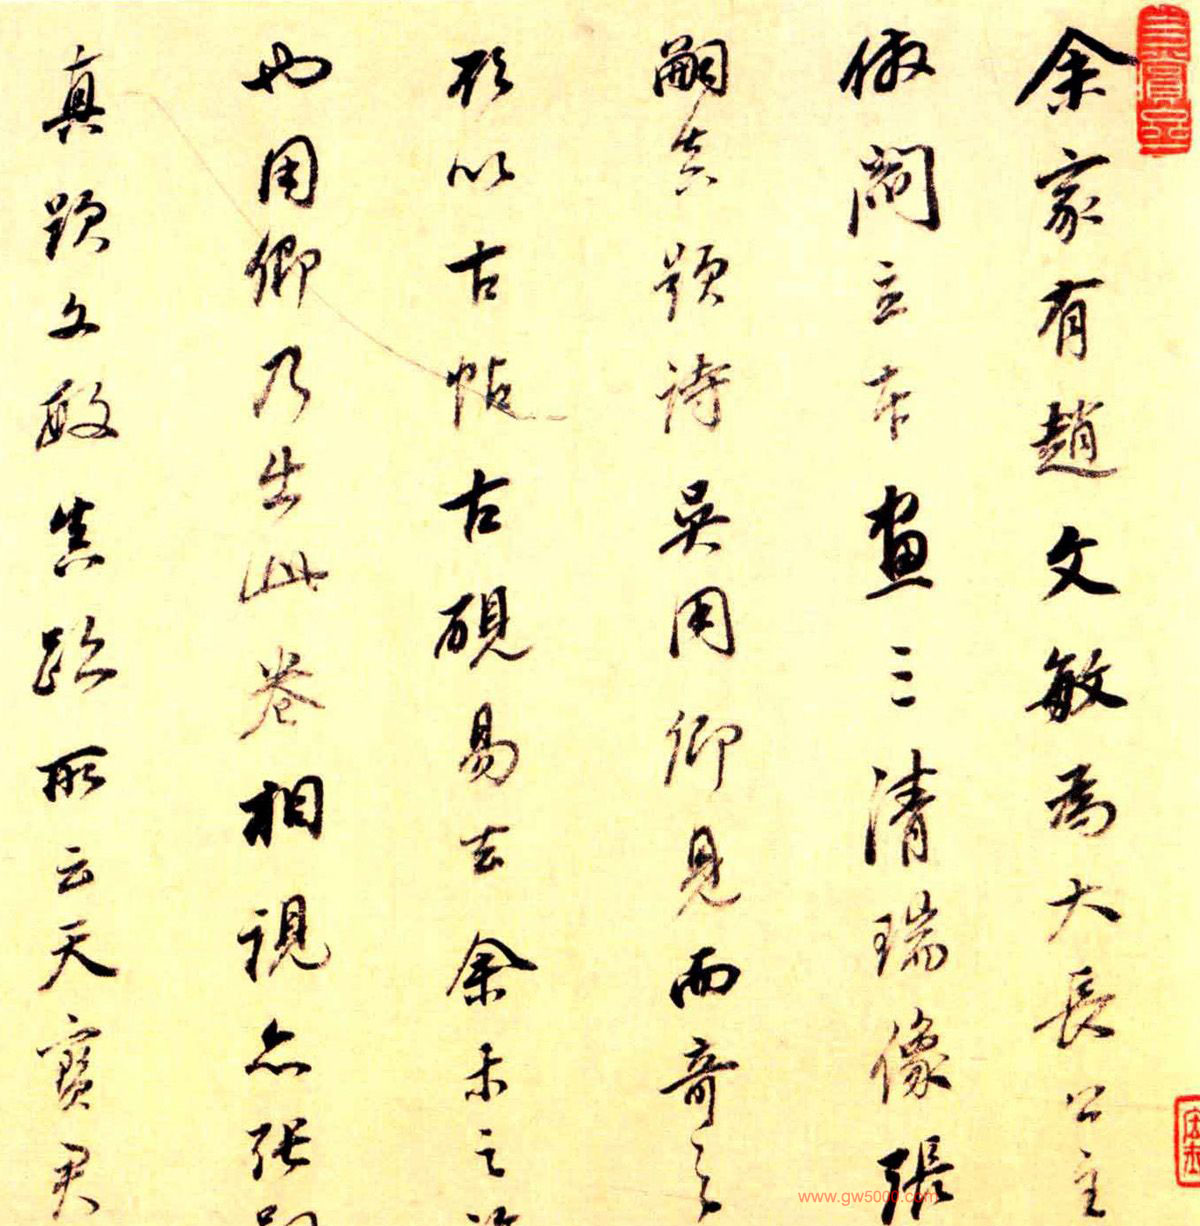 余家有趙文敏為大長公主
倣閻立本畫三清瑞像張
嗣真題詩吳用卿見而奇之
欲以古帖古硯易去余未之
也用卿乃出此卷相視亦張
真跋文敏真跡所云天寶君
www.gw5000.com